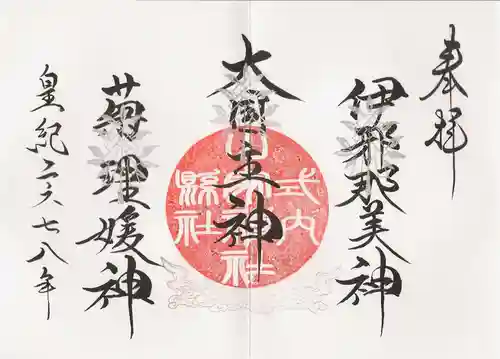 奉拝
伊邪那美神
大国主神
菊理媛神
皇紀二六七八年
式内
神社
縣社